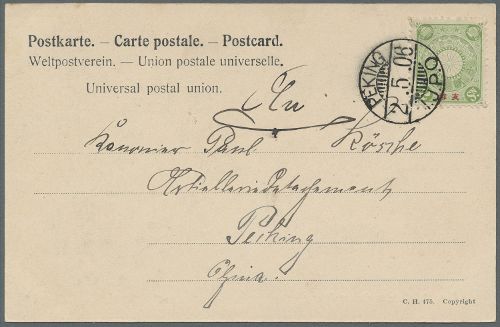 Postkarte. – Carte postale. – Postcard.
Weltpostverein. – Union postale universelle.
Universal postal union.
PEKING
2.5.06
I.J.P.O.
An
Kanonier Paul Kösche
Artilleriedetachement
Peking
China.
C. H. 475. Copyright